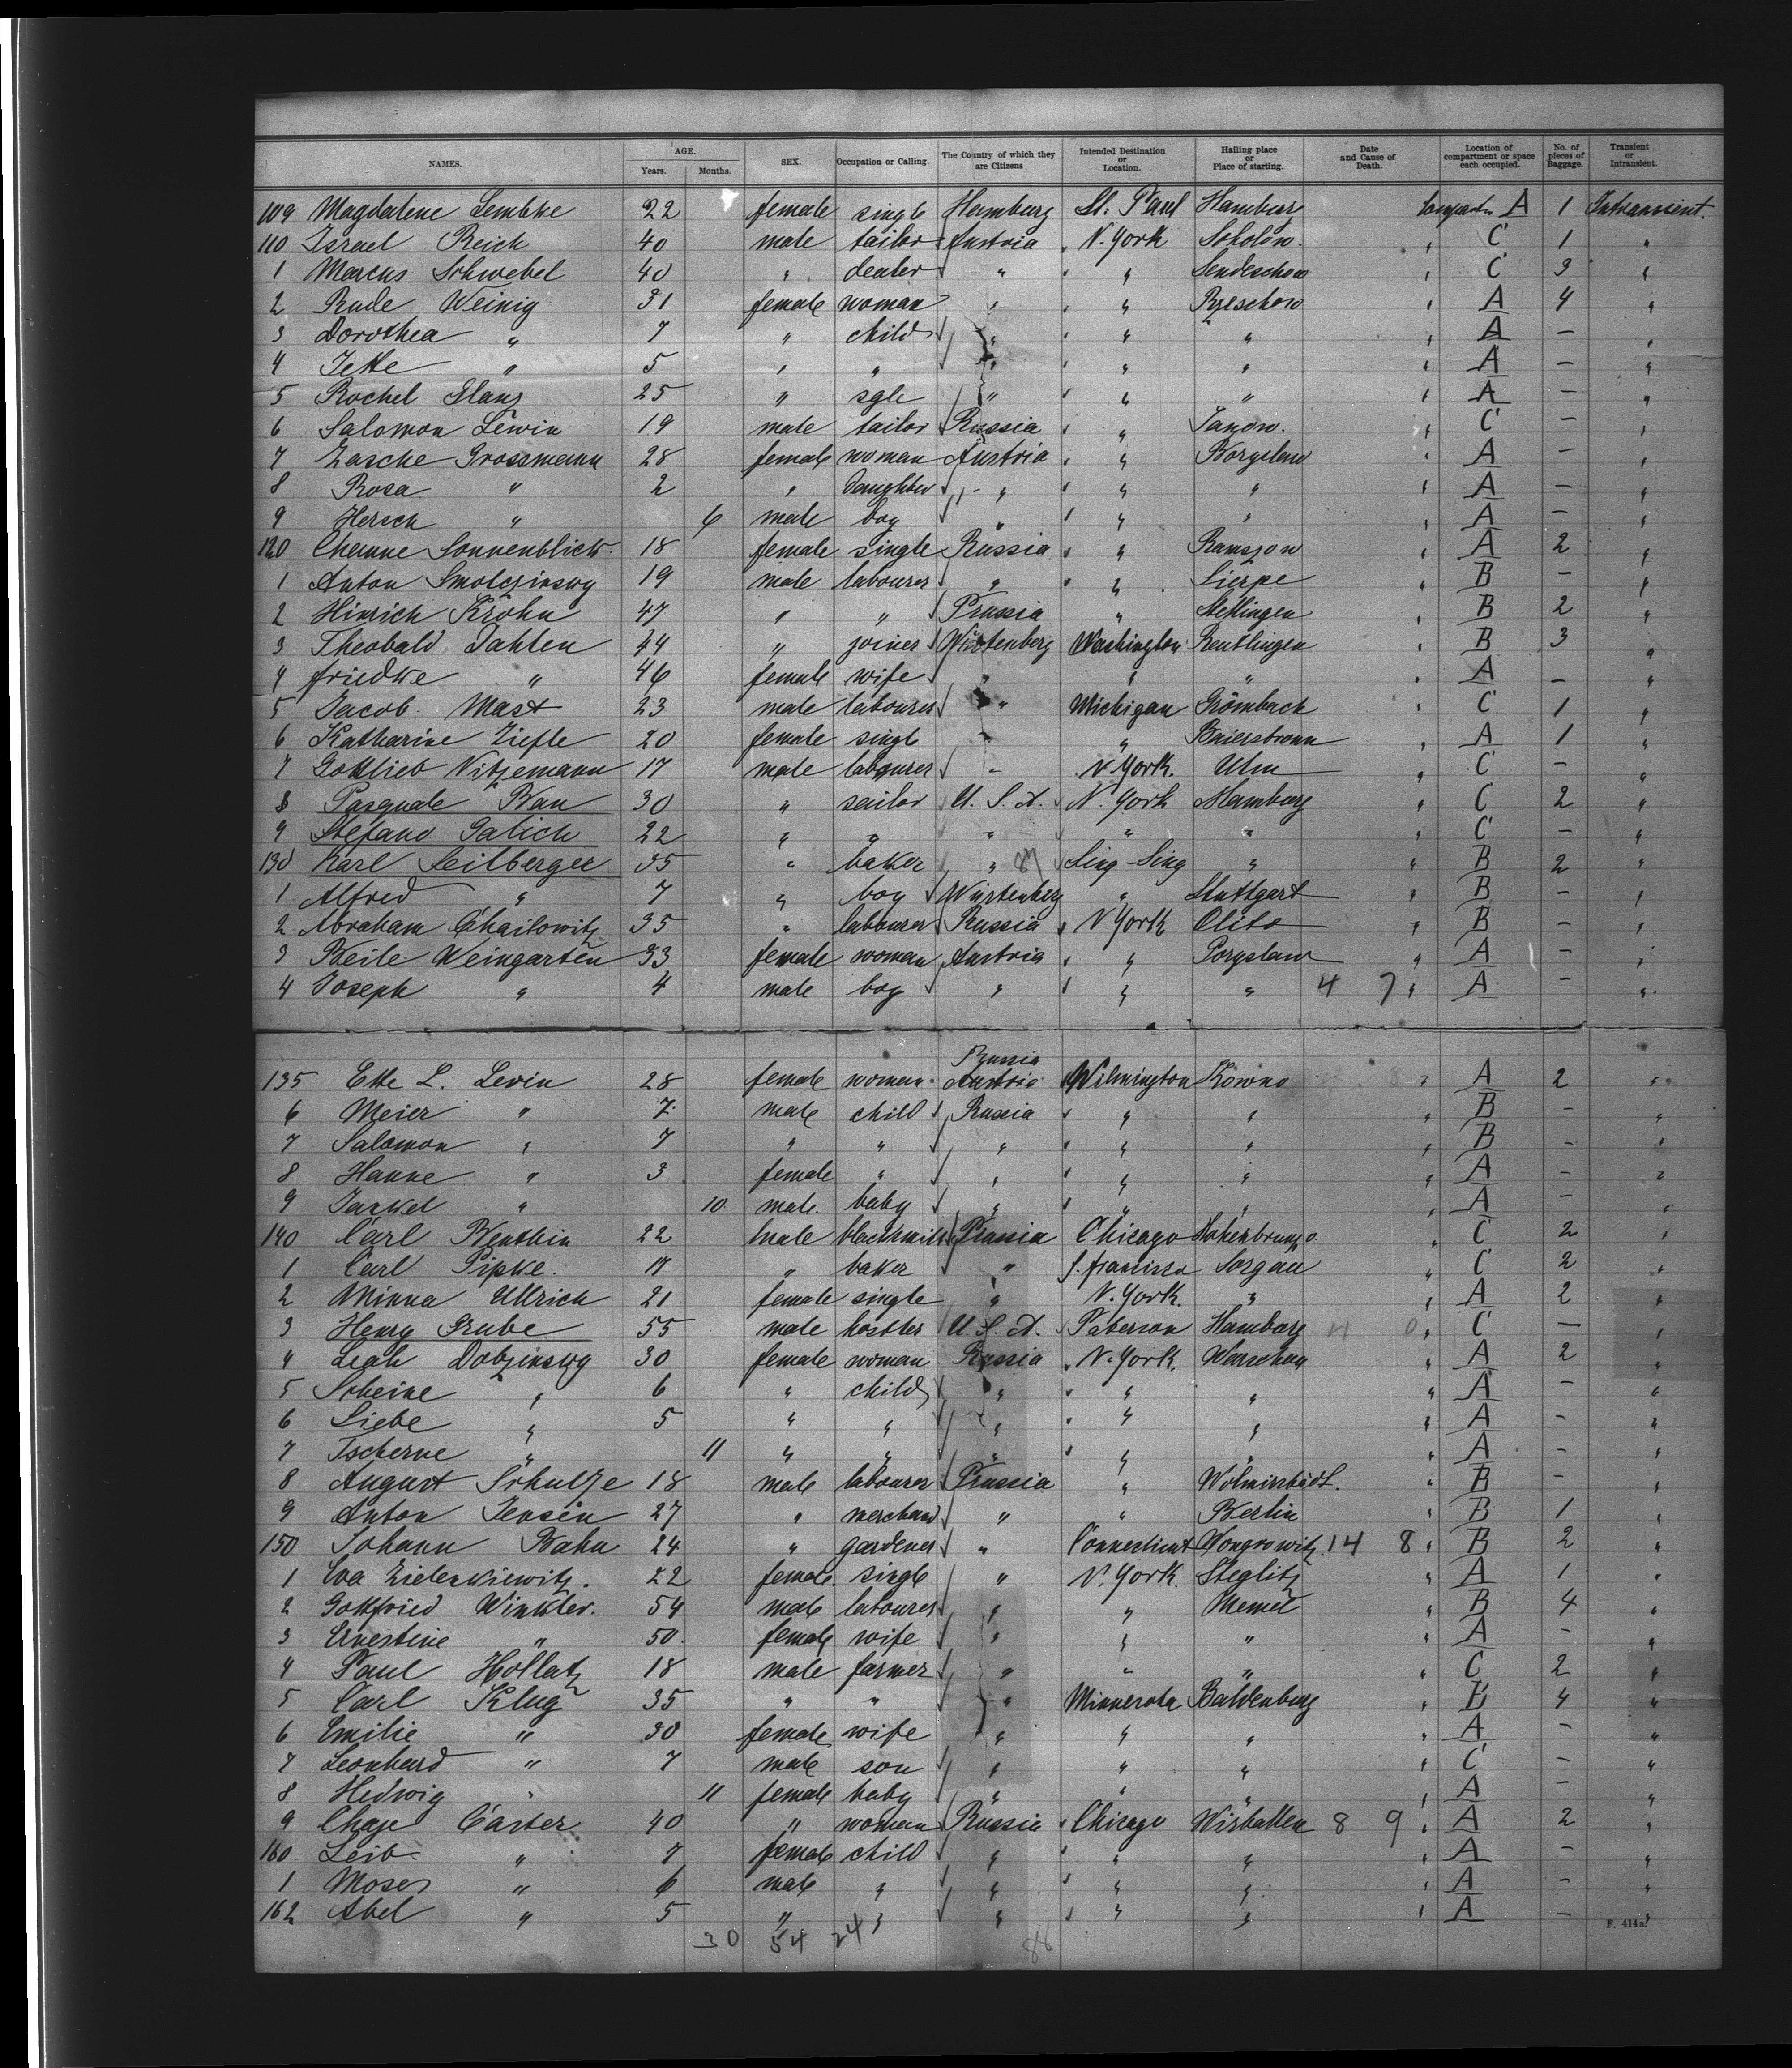 NAMES. AGE. Years. Months. SEX. Occupation or Calling. The Country of which they are Citizens Intended Destination or Location. Hailing place or Place of starting. Date and Cause of Death. Location of compartment or space each occupied. No. of pieces of Baggage. Transient or Intransient.
109 Magdalene Lembke 22 female single Hamburg St. Paul Hamburg A 1 Intransient.
110 Israel Reich 40 male tailor Austria " N. York " C 1 "
1 Marcus Schwebel 40 " dealer " " " Sendeschow " C 3 "
2 Rude Weinig 31 female woman " " " Rzeschow " A 4 "
3 Dorothea " 7 " child " " " " " A — "
4 Jette " 5 " " " " " " " A — "
5 Rochel 25 " sgle " " " " A — "
6 Salomon Lewin 19 male tailor Russia " " Janow. " C — "
7 Zasche Grossmann 28 female woman Austria " " Boryslaw " A — "
8 Rosa " 2 " daughter " " " " " A — "
9 Hersch " 6 male boy " " " " A — "
120 Channe Sonnenblick 18 female single Russia " " " A 2 "
1 Anton Smolczinsky 19 male labourer " " " Sierpe " B — "
2 Hinrich Kröhn 47 " " Prussia " Stellingen " B 2 "
3 Theobald Dahlen 44 " joiner Würtenberg Washington Reutlingen " B 3 "
4 Friedke " 46 female wife " " " " A — "
5 Jacob Mast 23 male labourer " Michigan Grömbach " C 1 "
6 Katharine Ziefle 20 female singl " " Baiersbronn " A 1 "
7 Gottlieb Nitzemann 17 male labourer " N. York. Ulm " C — "
8 Pasquale Bau 30 " sailor U. S. A. N. York Hamburg " C 2 "
9 Stefano Galich 22 " " " " " " C — "
130 Karl Seilberger 35 " baker " Sing-Sing " " B 2 "
1 Alfred " 7 " boy Würtenberg " Stuttgart " B — "
2 Abraham Chailowitz 35 " labourer Russia " N York Olita " B — "
3 Beile Weingarten 33 female woman Austria " " Boryslaw " A — "
4 Joseph " 4 male boy " " " " 4 7 " A — "
135 Ette L. Levin 28 female woman Russia Austria Wilmington Kowno " A 2 "
6 Meier " 7 male child Russia " " " " B — "
7 Salomon " 7 " " " " " " " B — "
8 Hanne " 3 female " " " " " " A — "
9 Jankel " 10 male baby " " " " " A — "
140 Carl Benthin 22 male blacksmith Prussia Chicago " C 2 "
1 Carl Pipke. 17 " baker " S. Francisco Sorgau " C 2 "
2 Minna Ullrich 21 female single " N. York. " " A 2 "
3 Henry Grube 55 male hostler U. S. A. Paterson Hamburg 4 0 " C — "
4 Leah Dobzinsky 30 female woman Russia " N. York. Warschau " A 2 "
5 Scheine " 6 " child " " " " " A — "
6 Liebe " 5 " " " " " " " A — "
7 Tscherne " 11 " " " " " " " A — "
8 August Schultze 18 male labourer Prussia " Wolmirstädt. " B — "
9 Anton Jensen 27 " merchand " " Berlin " B 1 "
150 Johann Bahn 24 " gardener " Connecticut Wongrowitz. 14 8 " B 2 "
1 Eva Zielenkiewitz. 22 female single " N. York. Steglitz " A 1 "
2 Gottfried Winkler. 54 male labourer " " Memel " B 4 "
3 Ernestine " 50 female wife " " " " A — "
4 Paul Hollatz 18 male farmer " " " " C 2 "
5 Carl Klug 35 " " " Minnesota Baldenburg " B 4 "
6 Emilie " 30 female wife " " " " A — "
7 Leonhard " 7 male son " " " " C — "
8 Hedwig " 11 female baby " " " " A — "
9 Chaje Carter 40 " woman Russia " Chicago Wirballen 8 9 " A 2 "
160 Leib " 7 female child " " " " " A — "
1 Moses " 6 male " " " " " " A — "
162 Abel " 5 " " " " " " " A — "
30 54 24 86
F. 414a.